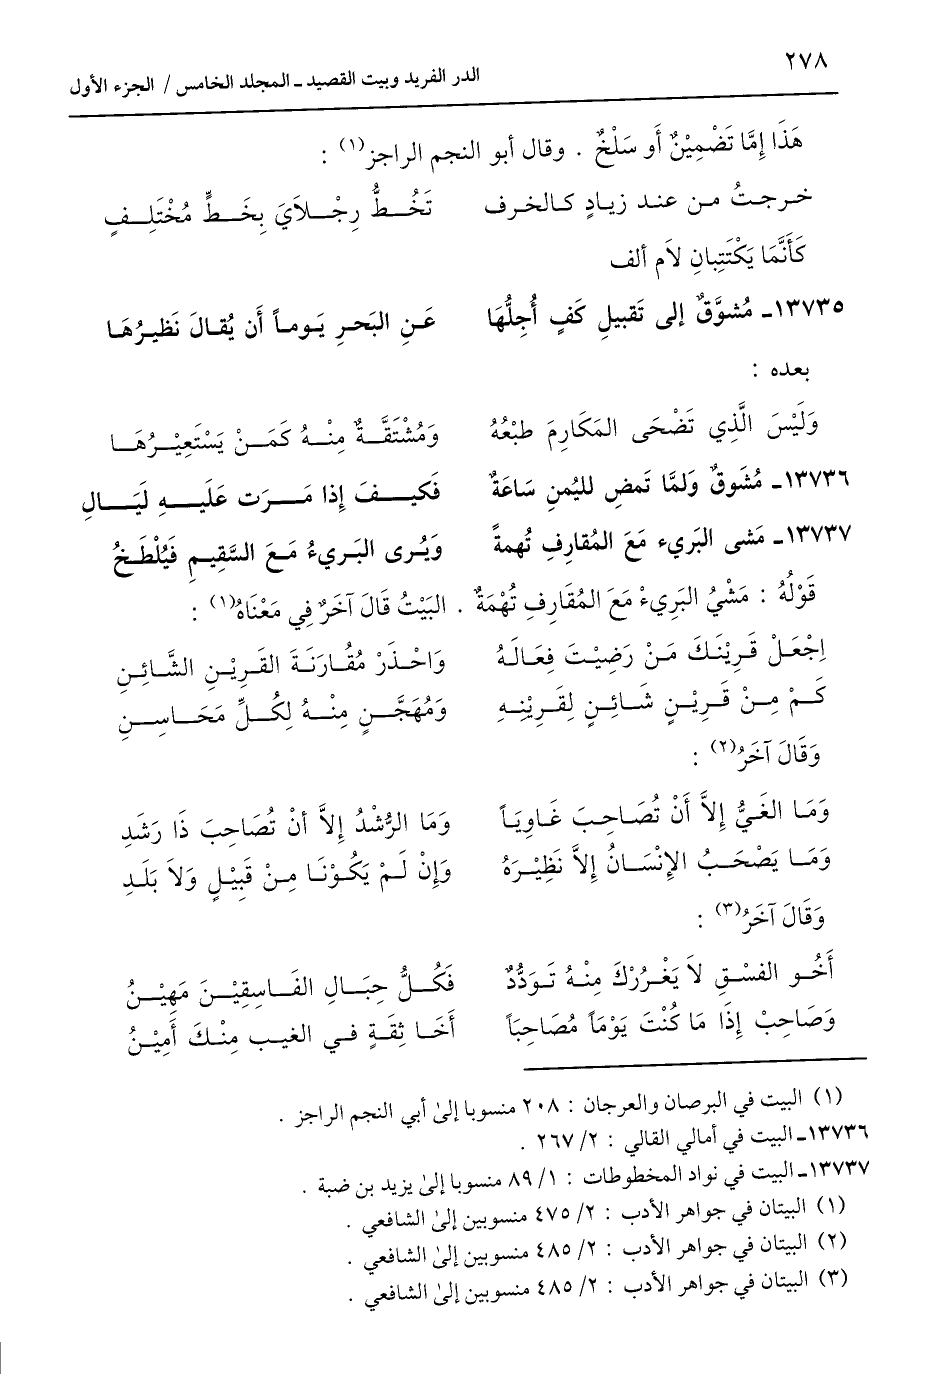 ٢٧٨
الدر الفريد وبيت القصيد ـ المجلد الخامس / الجزء الأول
هَذَا إِمَّا تَضْمِيْنٌ أَو سَلْخٌ . وقال أبو النجم الراجز(١) :
خرجتُ من عند زيادٍ كالخرف تَخُطُّ رِجْلاَيَ بِخَطٍّ مُخْتَلِفٍ
كَأَنَّمَا يَكْتَتِبانِ لاَم ألف
١٣٧٣٥ـ مُشوَّقٌ إلى تَقبيلِ كَفٍ أُجِلُّهَا عَنِ البَحرِ يَوماً أَن يُقالَ نَظيرُهَا
بعده :
وَلَيْسَ الَّذِي تَضْحَى المَكَارِمَ طبْعُهُ وَمُشْتَقَّةٌ مِنْهُ كَمَنْ يَسْتَعِيْرُهَا
١٣٧٣٦ـ مُشَوقٌ وَلمَّا تَمضِ لليُمنِ سَاعَةٌ فَكيفَ إذا مَرَت عَلَيهِ لَيَالِ
١٣٧٣٧ـ مَشى البَريء مَعَ المُقارِفِ تُهمةً وَيُرى البَريءُ مَعَ السَّقيمِ فَيُلْطَخُ
قَوْلُهُ : مَشْيُ البَرِيءْ مَعَ المُقَارِفِ تُهْمَةٌ . البَيْتُ قَالَ آخَرٌ فِي مَعْنَاهُ(١) :
اِجْعَلْ قَرِيْنَكَ مَنْ رَضِيْتَ فِعَالَهُ وَاحْذَرْ مُقَارَنَةَ القَرِيْنِ الشَّائِنِ
كَمْ مِنْ قَرِيْنٍ شَائِنٍ لِقَرِيْنِهِ وَمُهَجَّنٍ مِنْهُ لِكُلِّ مَحَاسِنِ
وَقَالَ آخَرُ(٢) :
وَمَا الغَيُّ إِلاَّ أَنْ تُصَاحِبَ غَاوِيَاً وَمَا الرُّشْدُ إِلاَّ أنْ تُصَاحِبَ ذَا رَشَدِ
وَمَا يَصْحَبُ الإِنْسَانُ إِلاَّ نَظِيْرَهُ وَإِنْ لَمْ يَكُوْنَا مِنْ قَبِيْلٍ وَلاَ بَلَدِ
وَقَالَ آخَرُ(٣) :
أَخُو الفسْقِ لاَ يَغْرُرْكَ مِنْهُ تَوَدُّدٌ فَكُلُّ حِبَالِ الفَاسِقِيْنَ مَهِيْنُ
وَصَاحِبْ إِذَا مَا كُنْتَ يَوْمَاً مُصَاحِبَاً أَخَا ثِقَةٍ في الغيب مِنْكَ أَمِيْنُ
(١) البيت في البرصان والعرجان : ٢٠٨ منسوبا إلىٰ أبي النجم الراجز .
١٣٧٣٦ـ البيت في أمالي القالي : ٢/ ٢٦٧ .
١٣٧٣٧ـ البيت في نواد المخطوطات : ١/ ٨٩ منسوبا إلىٰ يزيد بن ضبة .
(١) البيتان في جواهر الأدب : ٢/ ٤٧٥ منسوبين إلىٰ الشافعي .
(٢) البيتان في جواهر الأدب : ٢/ ٤٨٥ منسوبين إلىٰ الشافعي .
(٣) البيتان في جواهر الأدب : ٢/ ٤٨٥ منسوبين إلىٰ الشافعي .